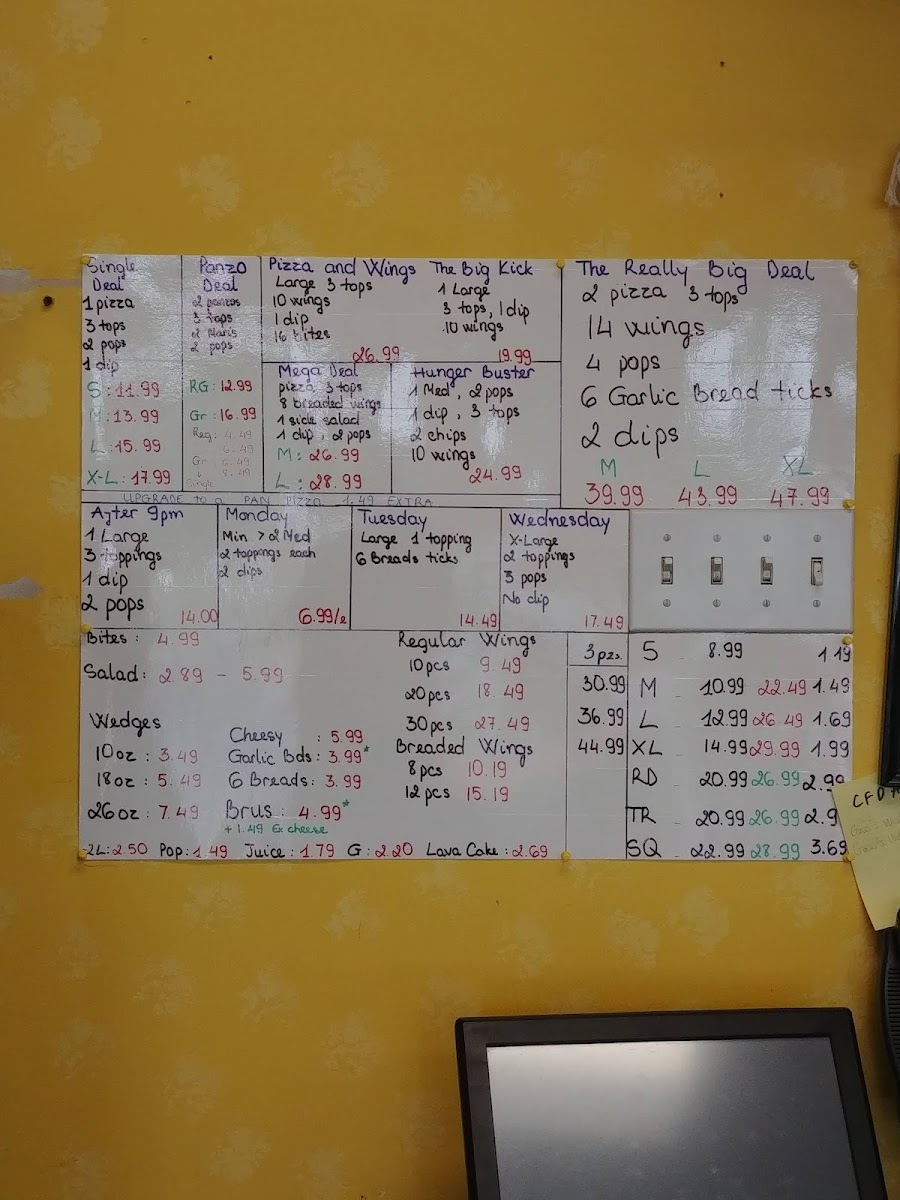 Single
Deal
1 pizza
3 tops
2 pops
1 dip
S: 11.99
M: 13.99
L: 15.99
X-L: 17.99
Panzo
Deal
2 panzos
3 tops
2 pops
RG: 12.99
Gr: 16.99
Reg: 4.49
6.49
Gr: 6.49
8.49
Single
Pizza and Wings
Large 3 tops
10 wings
1 dip
16 bites
26.99
The Big Kick
1 Large
3 tops, 1 dip
10 wings
19.99
Mega Deal
pizza 3 tops
8 breaded wings
1 side salad
1 dip, 2 pops
M: 26.99
L: 28.99
Hunger Buster
1 Med, 2 pops
1 dip, 3 tops
2 chips
10 wings
24.99
The Really Big Deal
2 pizza 3 tops
14 wings
4 pops
6 Garlic Bread ticks
2 dips
M L XL
39.99 43.99 47.99
UPGRADE to a PAN PIZZA 1.49 EXTRA
After 9pm
1 Large
3 toppings
1 dip
2 pops
14.00
Monday
Min > 2 Med
2 toppings each
2 dips
6.99/e
Tuesday
Large 1 topping
6 Breads ticks
14.49
Wednesday
X-Large
2 toppings
3 pops
No dip
17.49
Bites: 4.99
Salad: 2.89 - 5.99
Wedges
10oz: 3.49
18oz: 5.49
26oz: 7.49
Cheesy : 5.99
Garlic Bds: 3.99*
6 Breads: 3.99
Brus: 4.99*
+ 1.49 Ex cheese
Regular Wings
10pcs 9.49
20pcs 18.49
30pcs 27.49
Breaded Wings
8pcs 10.19
12pcs 15.19
2L: 2.50 Pop: 1.49 Juice: 1.79 G: 2.20 Lava Cake: 2.69
3pzs.
30.99
36.99
44.99
S - 8.99 1.19
M - 10.99 22.49 1.49
L - 12.99 26.49 1.69
XL - 14.99 29.99 1.99
RD - 20.99 26.99 2.99
TR - 20.99 26.99 2.9
SQ - 22.99 28.99 3.69